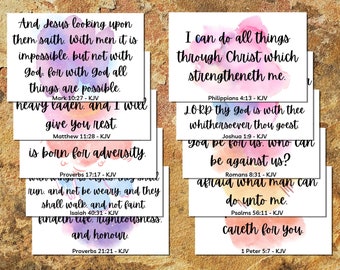 And Jesus looking upon
them saith, With men it is
impossible, but not with
God: for with God all
things are possible.
Mark 10:27 - KJV
heavy laden, and I will
give you rest.
Matthew 11:28 - KJV
is born for adversity.
Proverbs 17:17 - KJV
run, and not be weary; and they
shall walk, and not faint.
Isaiah 40:31 - KJV
findeth life, righteousness,
and honour.
Proverbs 21:21 - KJV
I can do all things
through Christ which
strengtheneth me.
Philippians 4:13 - KJV
LORD thy God is with thee
whithersoever thou goest
Joshua 1:9 - KJV
God be for us, who can
be against us?
Romans 8:31 - KJV
afraid what man can
do unto me.
Psalms 56:11 - KJV
careth for you.
1 Peter 5:7 - KJV